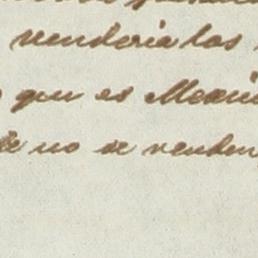 venderia los
que es Mexi
no se vender